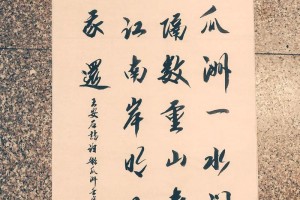 瓜洲一水間
隔數重山春
江南岸明
我還
王安石詩泊船瓜洲